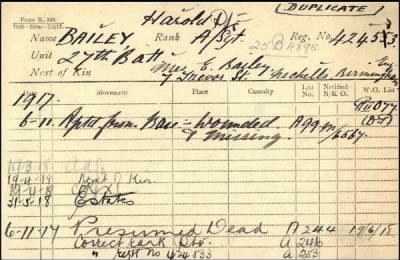 (DUPLICATE)
FORM R. 149.
Harold
Name BAILEY Rank A/Sgt Reg. No 424583
Unit 27th Batt 25 B 4895
Next of Kin Mrs. E. Bailey, Eng
7 Trevor St. Nechells, Birmingham
1917.
Date Movement Place Casualty List No. Notified N/K O. W.O. List
6-11. Rptd from Base - Wounded A99m/
& missing. 6567
19-3-18
19-4-18 Next of Kin
31-5-18 Estates
6-11-17 Presumed Dead A 244 19/6/18
Correct rank Pte. A 246
" regtl No 424533 A 253